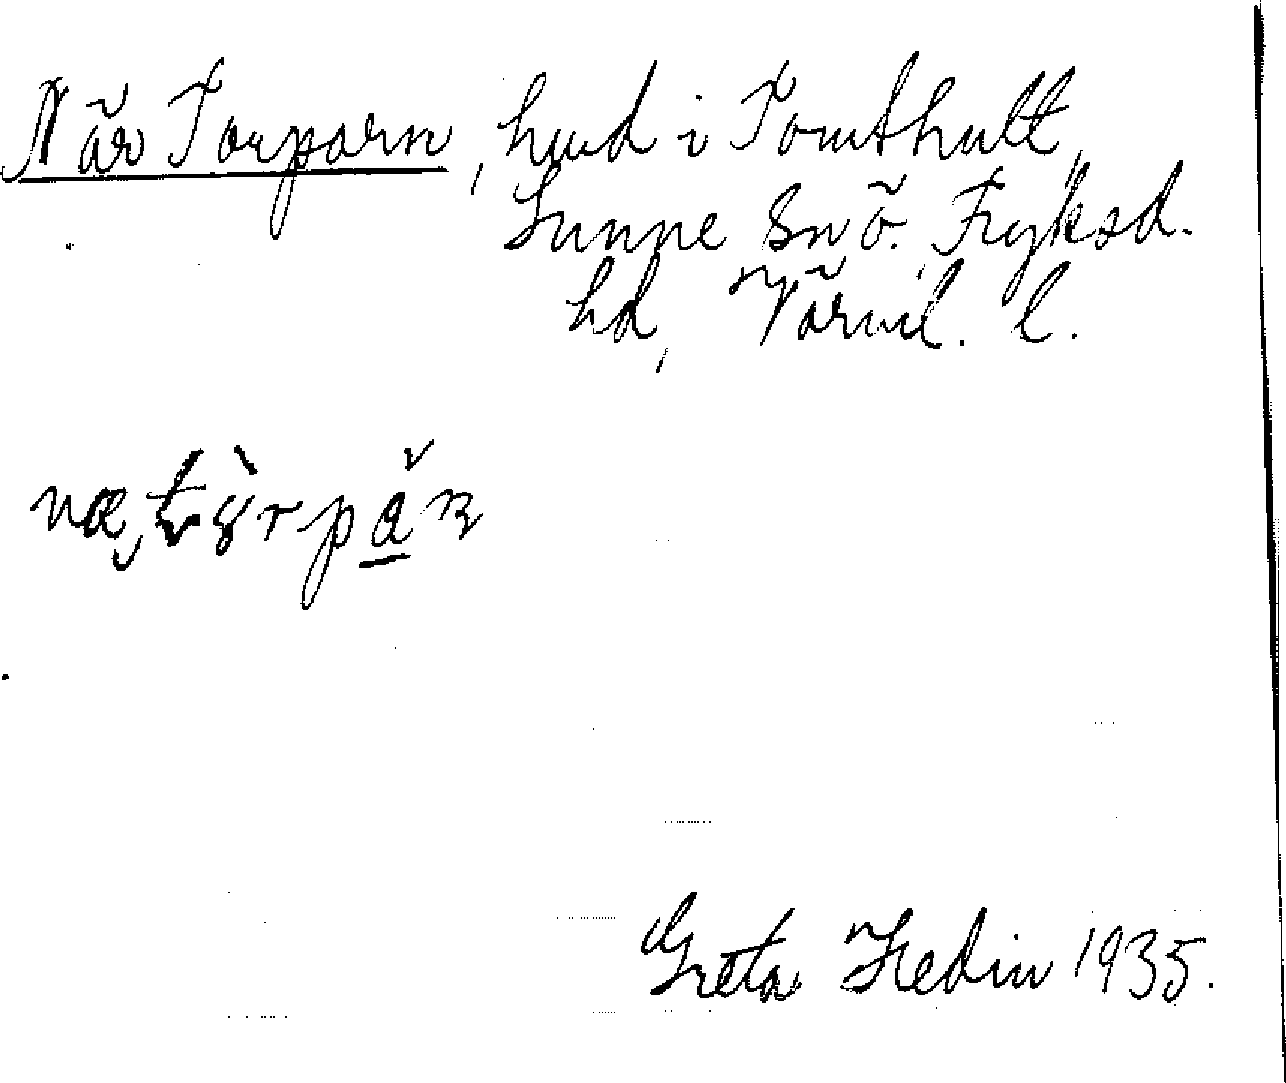 När Torparn, hmd i Tomthult,
Sunne sn ö. Fryksd.
hd, Värml. l.
Greta Hedin 1935.